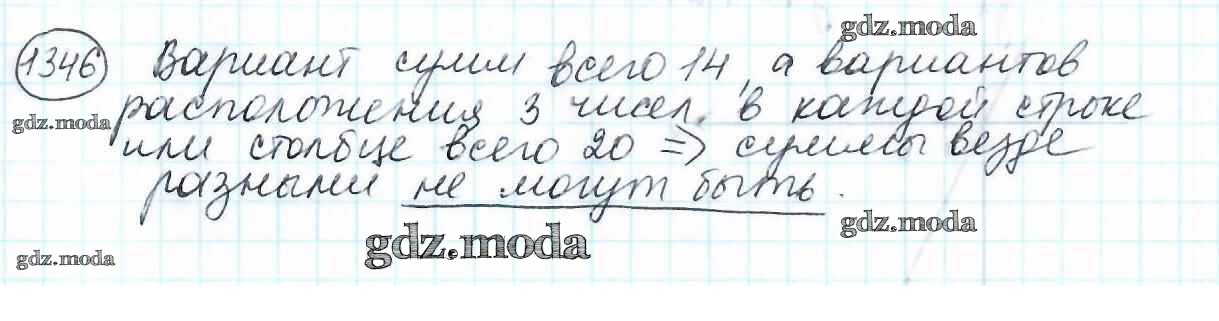 gdz.moda
1346 Вариант сумм всего 14, а вариантов
расположения 3 чисел в каждой строке
gdz.moda
или столбце всего 20 => суммы везде
разными не могут быть.
gdz.moda
gdz.moda
gdz.moda